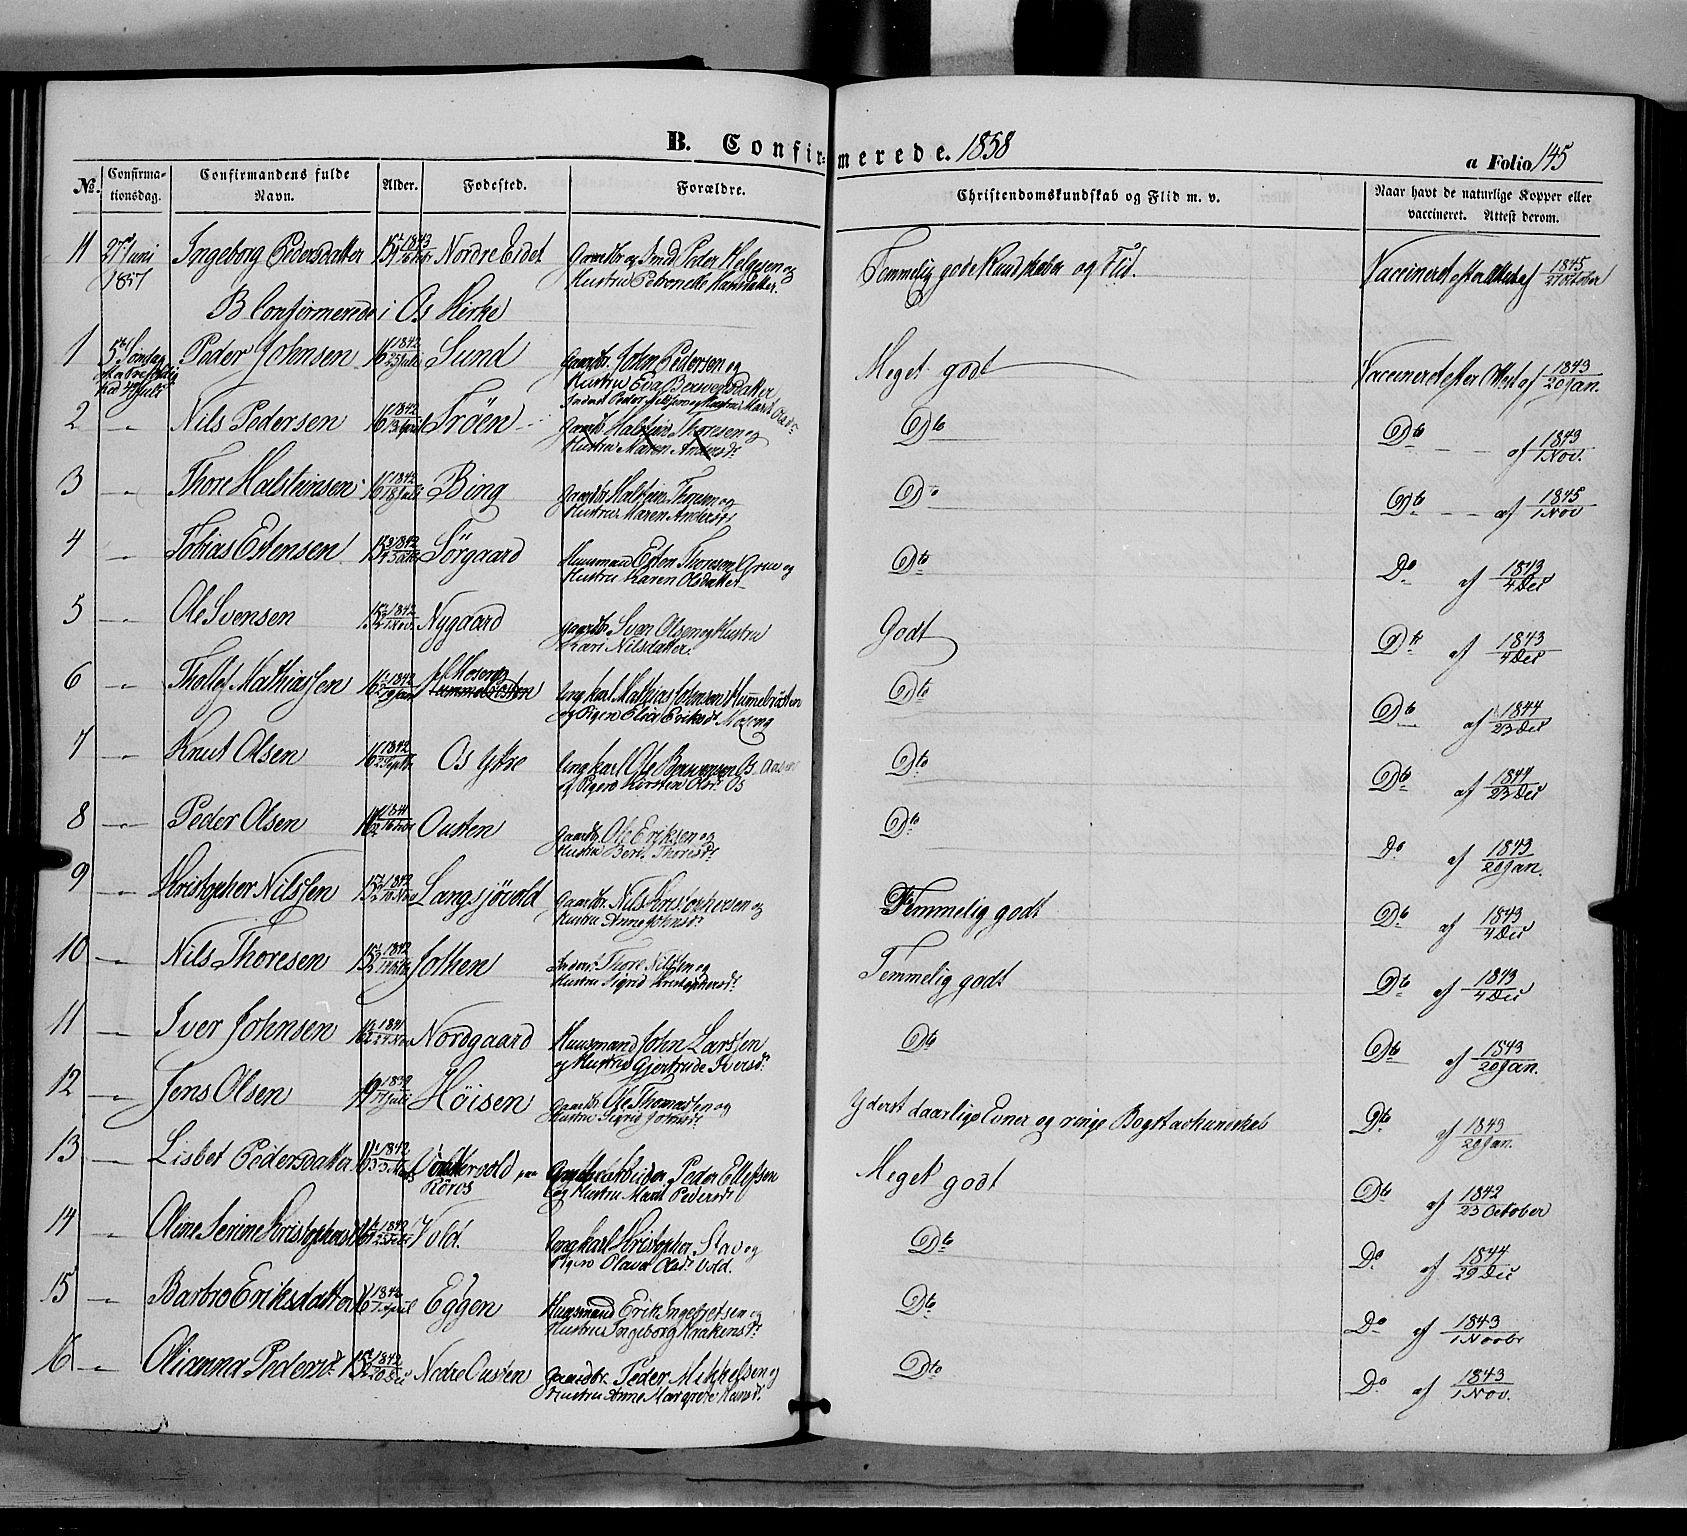 B. Confirmerede. 1858
a Folio 145
No. Confirmationsdag. Confirmandens fulde Navn. Alder. Fødested. Forældre. Christendomskundskab og Flid m. v. Naar havt de naturlige Kopper eller vaccineret. Attest derom.
11 27 Juni 1857 Ingeborg Pedersdatter 1843 Nordre Eidet Gaardbr og Peder Helgesen og Hustru Petronelle Temmelig gode Kundskaber og Flid. Vaccineret efter Attest af 1845 21 October
B Confirmerede i Os Kirke
1 5te Søndag Peder Johnsen 16 1842 25 Juli Sund Gaardbr. John Pedersen og Hustru Eva Meget godt Vaccineret efter Attest af 1843 20 Jan.
2 " Nils Pedersen 16 1842 Trøen Inderst Peder Nilssen og Hustru Marit Olsd.
Gaardb Halstein Thoresen og Hustru Maren Andersd. Dto Dto af 1843 1 Nov.
3 " Thore Halsteinsen 16 1842 18 Juli Bing Gaardbr. Halstein Thoresen og Hustru Maren Andersd. Do Dto af 1845 1 Nov
4 " Tobias Estensen 1842 Sörgaard Huusmand Esten Thoresen Grue og Hustru Karen Olsdatter Dto Do af 1843 4 Dec
5 " Ole Svensen 15 1842 1 Nov. Nygaard Gaardbr. Sven Olsen og Hustru Kari Nilsdatter. Godt Dto af 1843 4 Dec
6 " Thollef Mathiassen 16 1842 Moseng Ungkarl Mathias Johnsen Hummelvolden og Pigen Eriksd. Moseng Dto Dto af 1844 23 Dec
7 " Knut Olsen 1842 Os Ytre Ungkarl Ole og Pigen Kirsten Olsd. Os Dto Dto af 1844 23 Dec
8 " Peder Olsen 1841 Ousten Gaardbr. Ole Eriksen og Hustru Berit Thoresd. Dto Do af 1843 20 Jan.
9 " Kristopher Nilssen 15 1842 Langsjövold Gaardbr. Nils Kristophersen og Hustru Anne Johnsd. Temmelig godt Dto af 1843 4 Dec
10 " Nils Thoresen 15 1842 Jothen Inderst Thore Nilssen og Hustru Sigrid Kristophersd. Temmelig godt Dto af 1843 4 Dec
11 " Iver Johnsen 16 1841 Nordgaard Huusmand John Larssen og Hustru Gjertrude Iversd. Dto Dto af 1843 20 Jan.
12 " Jens Olsen 19 1839 Juli Höisen Gaardbr. Ole Thomassen og Hustru Sigrid Johnsd. Yderst daarlige Evner og ringe Bogstavkundskab Dto af 1843 20 Jan.
13 " Lisbet Pedersdatter 1842 Röros Peder Ellefsen og Hustru Marit Pedersd. Meget godt Dto af 1842 23 October
14 " Oline Serine Kristophersd 1842 Vold. Ungkarl Kristopher og Pigen Olava Olsd. Vold. Dto Do af 1844 29 Dec
15 " Barbro Eriksdatter 16 1842 April Eggen Huusmand Erik Ingebretsen og Hustru Ingeborg Haakensd. Dto Do af 1843 1 Novbr
16 " Olianna Pedersd. 15 1842 20 Dec Nedre Ousten Gaardbr. Peder Mikkelsen og Hustru Anne Margrete Hansd. Dto Do af 1843 1 Nov.